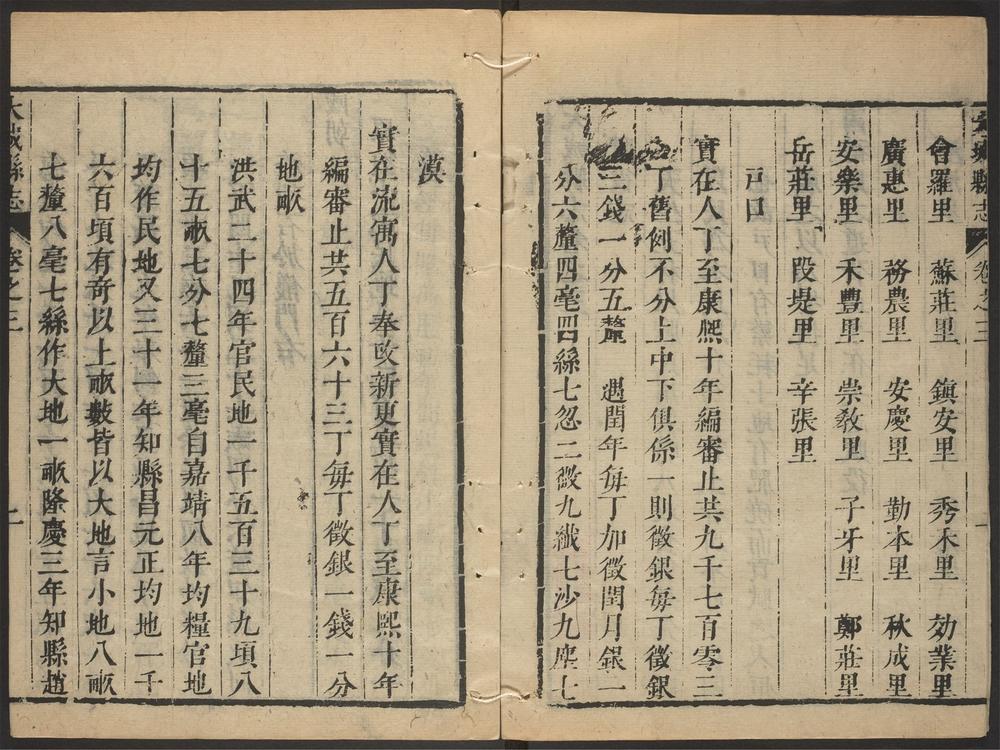 城縣志 卷之三 一
會羅里 蘇莊里 鎮安里 秀木里 効業里
廣惠里 務農里 安慶里 勤本里 秋成里
安樂里 禾豐里 崇敎里 子牙里 鄭莊里
岳莊里 段堤里 辛張里
戸口
實在人丁至康熙十年編審止共九千七百零三
丁舊例不分上中下俱係一則徵銀每丁徵銀
三錢一分五釐 遇閏年每丁加徵閏月銀一
分六釐四毫四絲七忽二微九纖七沙九塵七
漠
實在流寓人丁奉改新更實在人丁至康熙十年
編審止共五百六十三丁每丁徵銀一錢一分
地畝
洪武二十四年官民地一千五百三十九頃八
十五畝七分七釐三毫自嘉靖八年均糧官地
均作民地又三十一年知縣昌元正均地一千
六百頃有奇以上畝數皆以大地言小地八畝
七釐八毫七絲作大地一畝隆慶三年知縣趙
大城縣志 卷之三 二